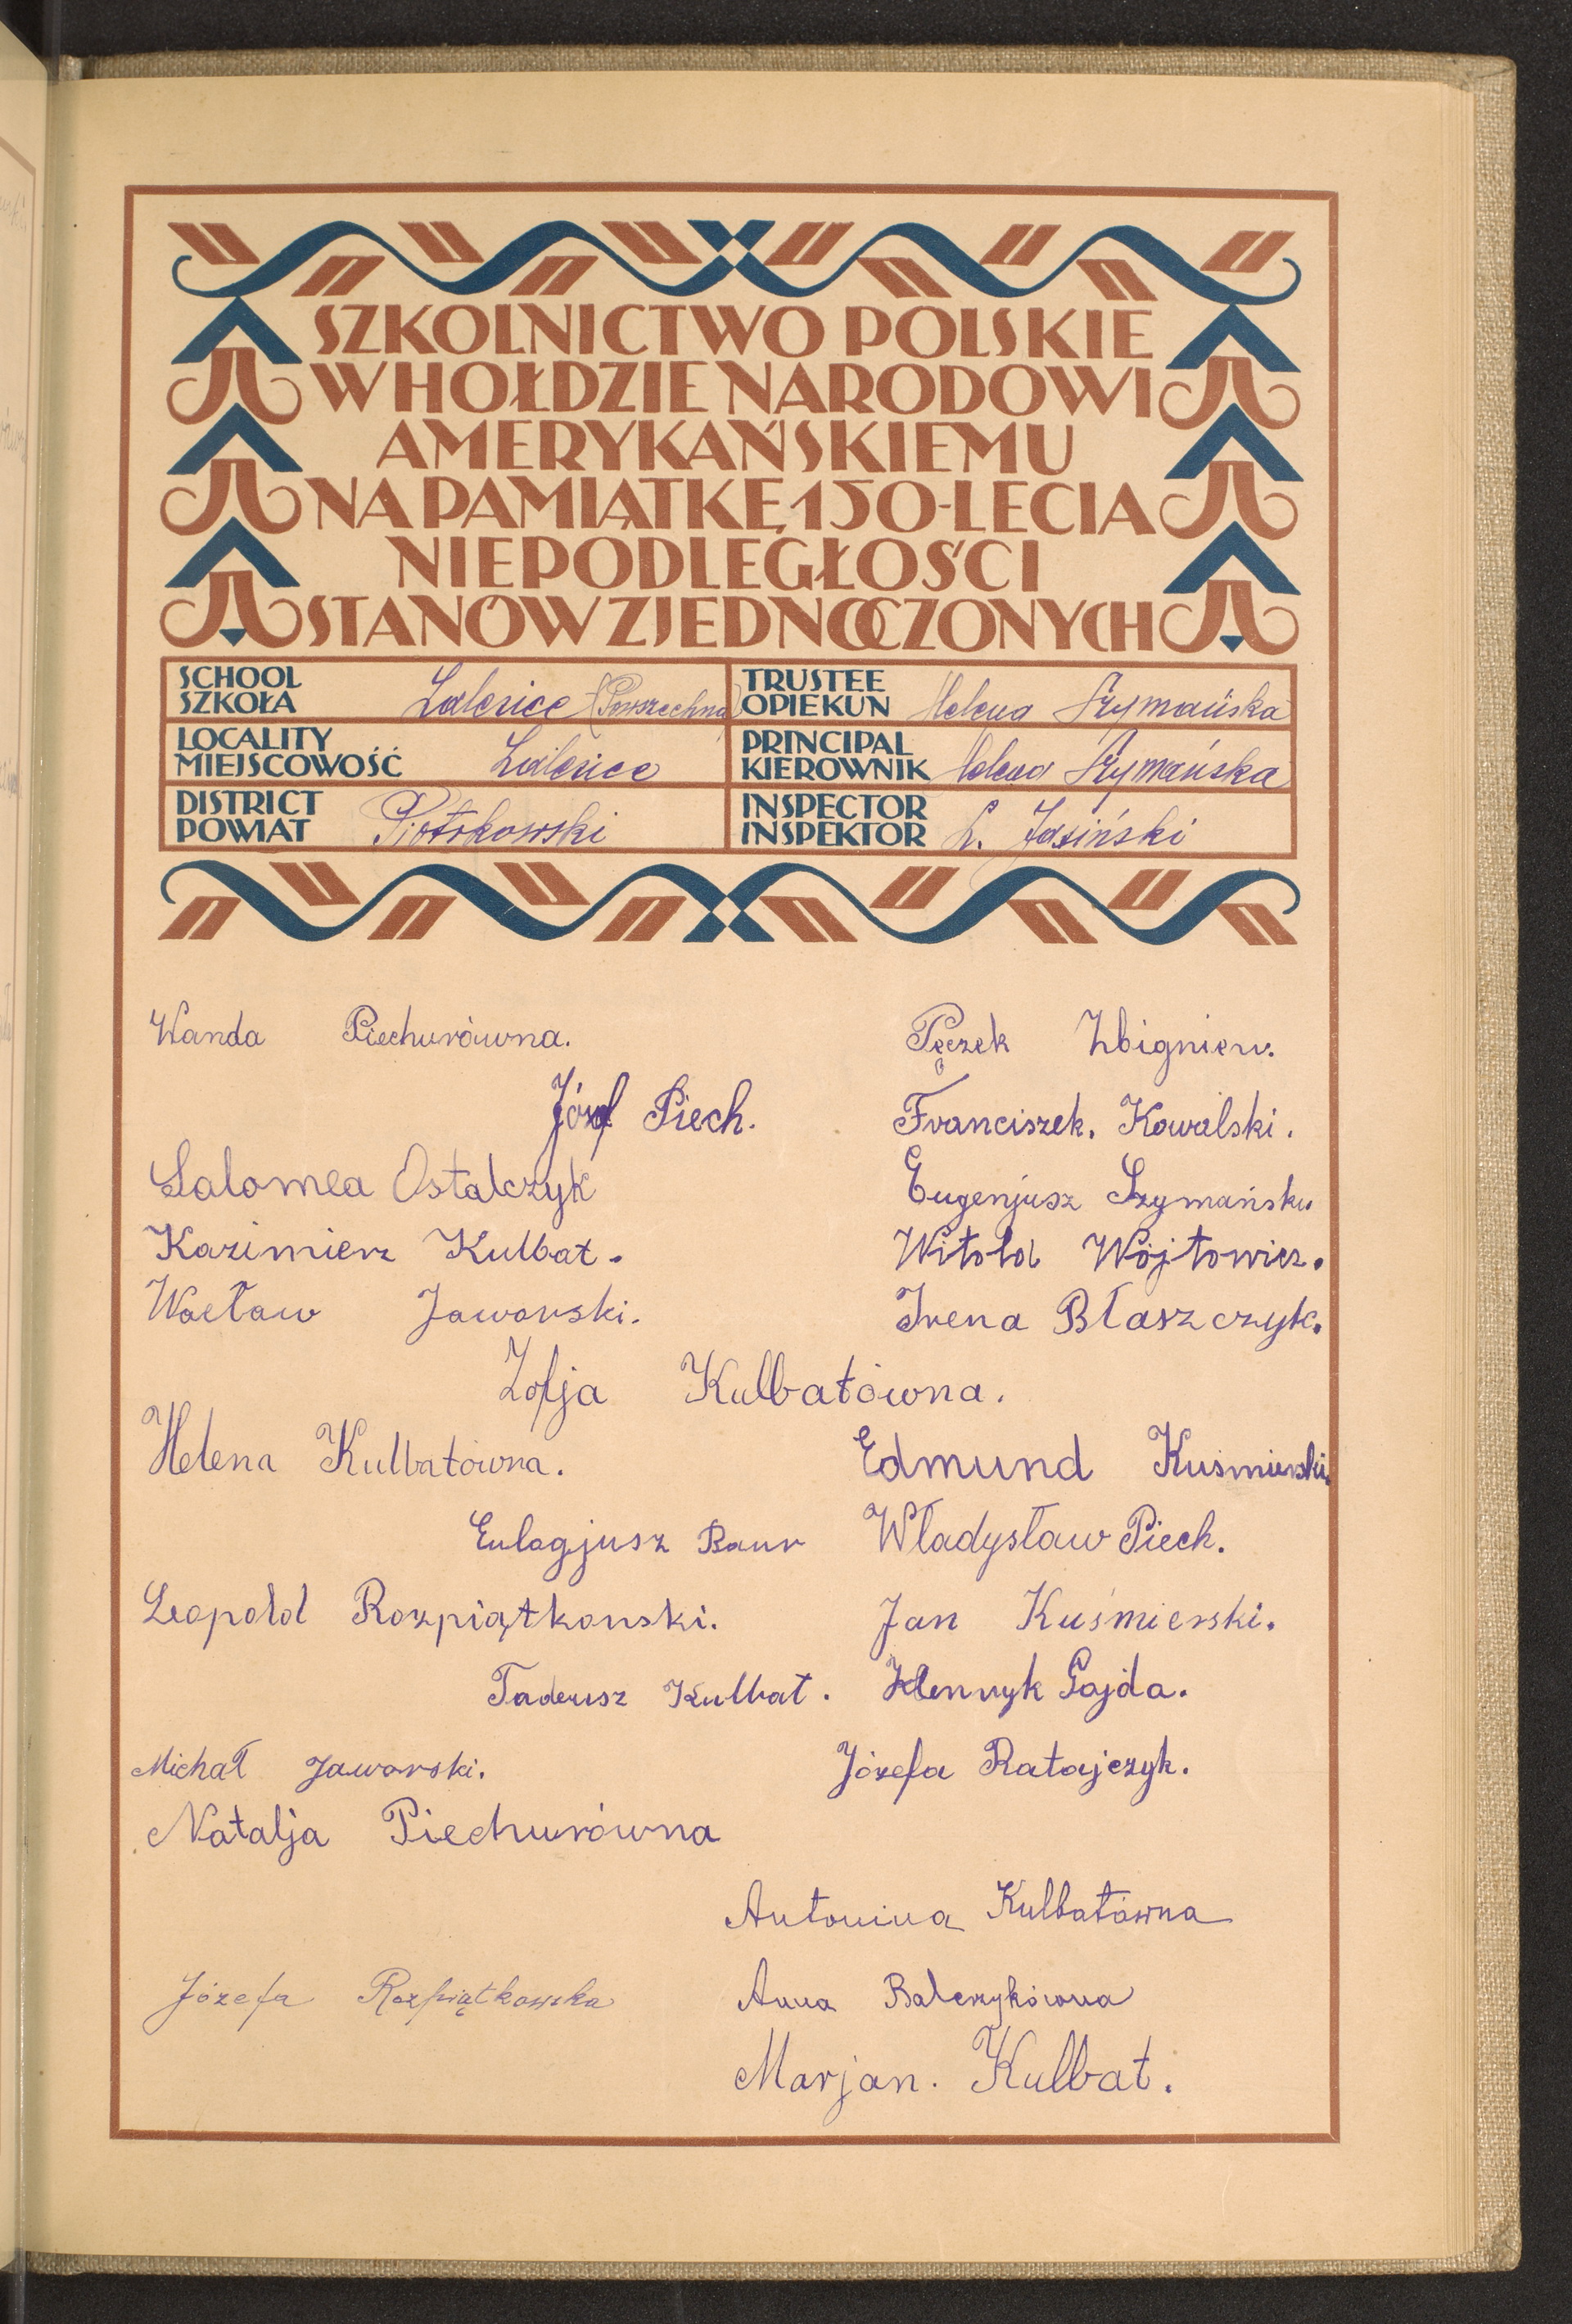 SZKOLNICTWO POLSKIE
W HOŁDZIE NARODOWI
AMERYKAŃSKIEMU
NA PAMIĄTKĘ 150-LECIA
NIEPODLEGŁOŚCI
STANÓW ZJEDNOCZONYCH
SCHOOL
SZKOŁA Zalesice (Powszechna)
TRUSTEE
OPIEKUN Helena Szymańska
LOCALITY
MIEJSCOWOŚĆ Zalesice
PRINCIPAL
KIEROWNIK Helena Szymańska
DISTRICT
POWIAT Piotrkowski
INSPECTOR
INSPEKTOR L. Jasiński
Wanda Piechurówna.
Pęczek Zbigniew.
Józef Piech.
Franciszek. Kowalski.
Salomea Ostalczyk
Eugenjusz Szymański
Kazimierz Kulbat.
Witold Wójtowicz.
Wacław Jaworski.
Irena Błaszczyk.
Zofja Kulbatówna.
Helena Kulbatówna.
Edmund Kuśmierski.
Eulogjusz Baur
Władysław Piech.
Leopold Rozpiątkowski.
Jan Kuśmierski.
Tadeusz Kulbat.
Henryk Gajda.
Michał Jaworski.
Józefa Ratajczyk.
Natalja Piechurówna
Antonina Kulbatówna
Józefa Rozpiątkowska
Anna Balczykówna
Marjan. Kulbat.